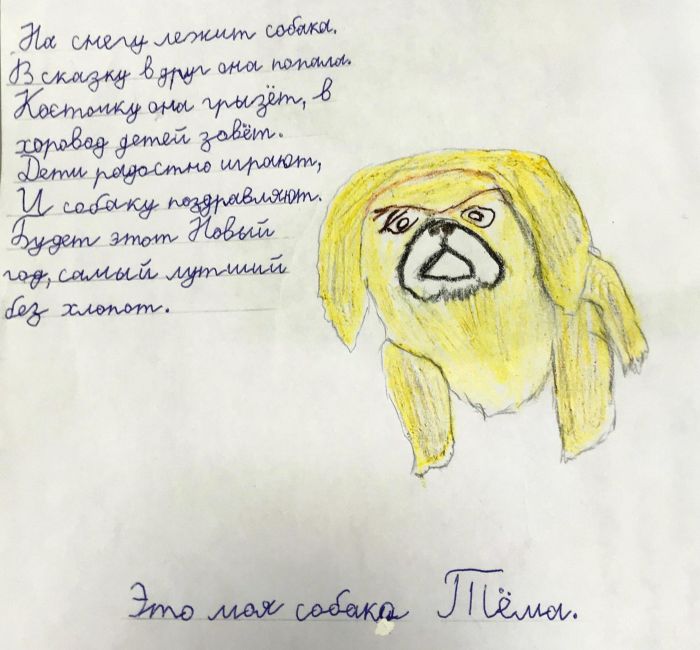 На снегу лежит собака.
В сказку в друг она попала.
Косточку она грызёт, в
хоровод детей зовёт.
Дети радостно играют,
И собаку поздравляют.
Будет этот Новый
год, самый лутший
без хлопот.
Это моя собака Тёма.